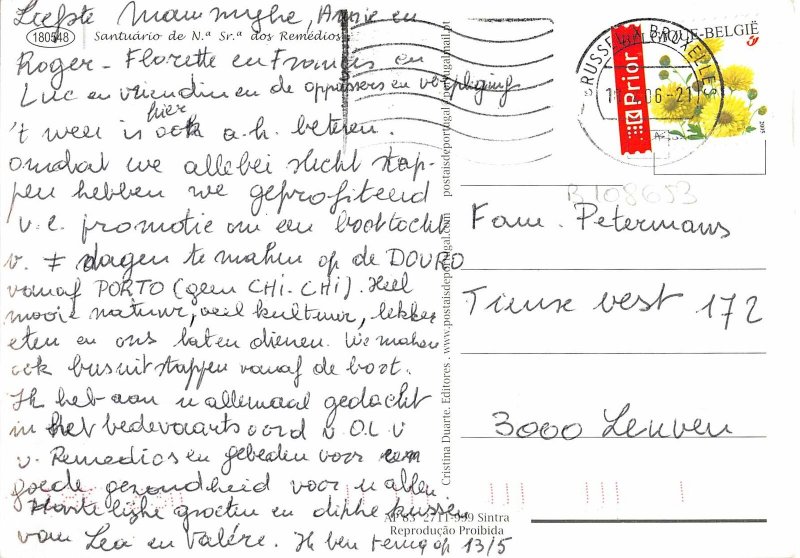 Liefste Mammighe, Annie en
180548 Santuário de N.ª Sr.ª dos Remédios
Roger - Florette en Francis en
Luc en vriendin en de oppassers en verpleging
't weer is hier ook a.h. beteren.
omdat we allebei slecht stap-
pen hebben we geprofiteerd
v.e. promotie om een boottocht
v. 7 dagen te maken op de DOURO
vanaf PORTO (geen CHI-CHI). Heel
mooie natuur, veel kultuur, lekker
eten en ons laten dienen. We maken
ook busuitstappen vanaf de boot.
Ik heb aan u allemaal gedacht
in het bedevaartsoord v O.L.V
v. Remedios en gebeden voor een
goede gezondheid voor u allen
Hartelijke groeten en dikke kussen
van Lea en Valére. Ik ben terug op 13/5
Cristina Duarte, Editores . www.postaisdeportugal.com postaisdeportugal@postaisdeportugalmail.pt
AP 83 2711-999 Sintra
Reprodução Proibida
BELGIQUE-BELGIË
Prior
BRUSSEL X BRUXELLES
06-21
B108653
Fam. Petermans
Tiense vest 172
3000 Leuven